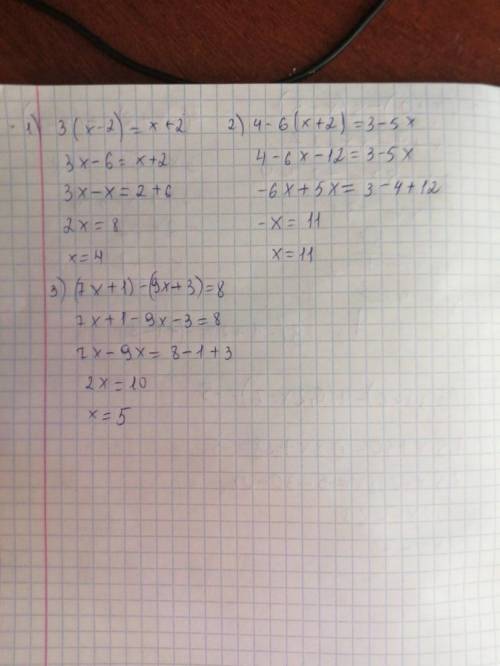 1) 3(x-2)=x+2
3x-6=x+2
3x-x=2+6
2x=8
x=4
2) 4-6(x+2)=3-5x
4-6x-12=3-5x
-6x+5x=3-4+12
-x=11
x=11
3) (7x+1)-(9x+3)=8
7x+1-9x-3=8
7x-9x=8-1+3
2x=10
x=5